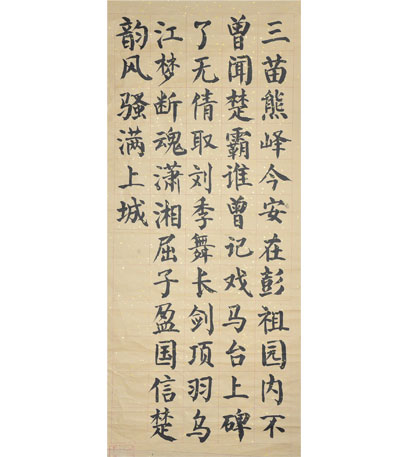 三苗熊峄今安在彭祖园内不
曾闻楚霸谁曾记戏马台上碑
了无倩取刘季舞长剑项羽乌
江梦断魂潇湘屈子盈国信楚
韵风骚满上城